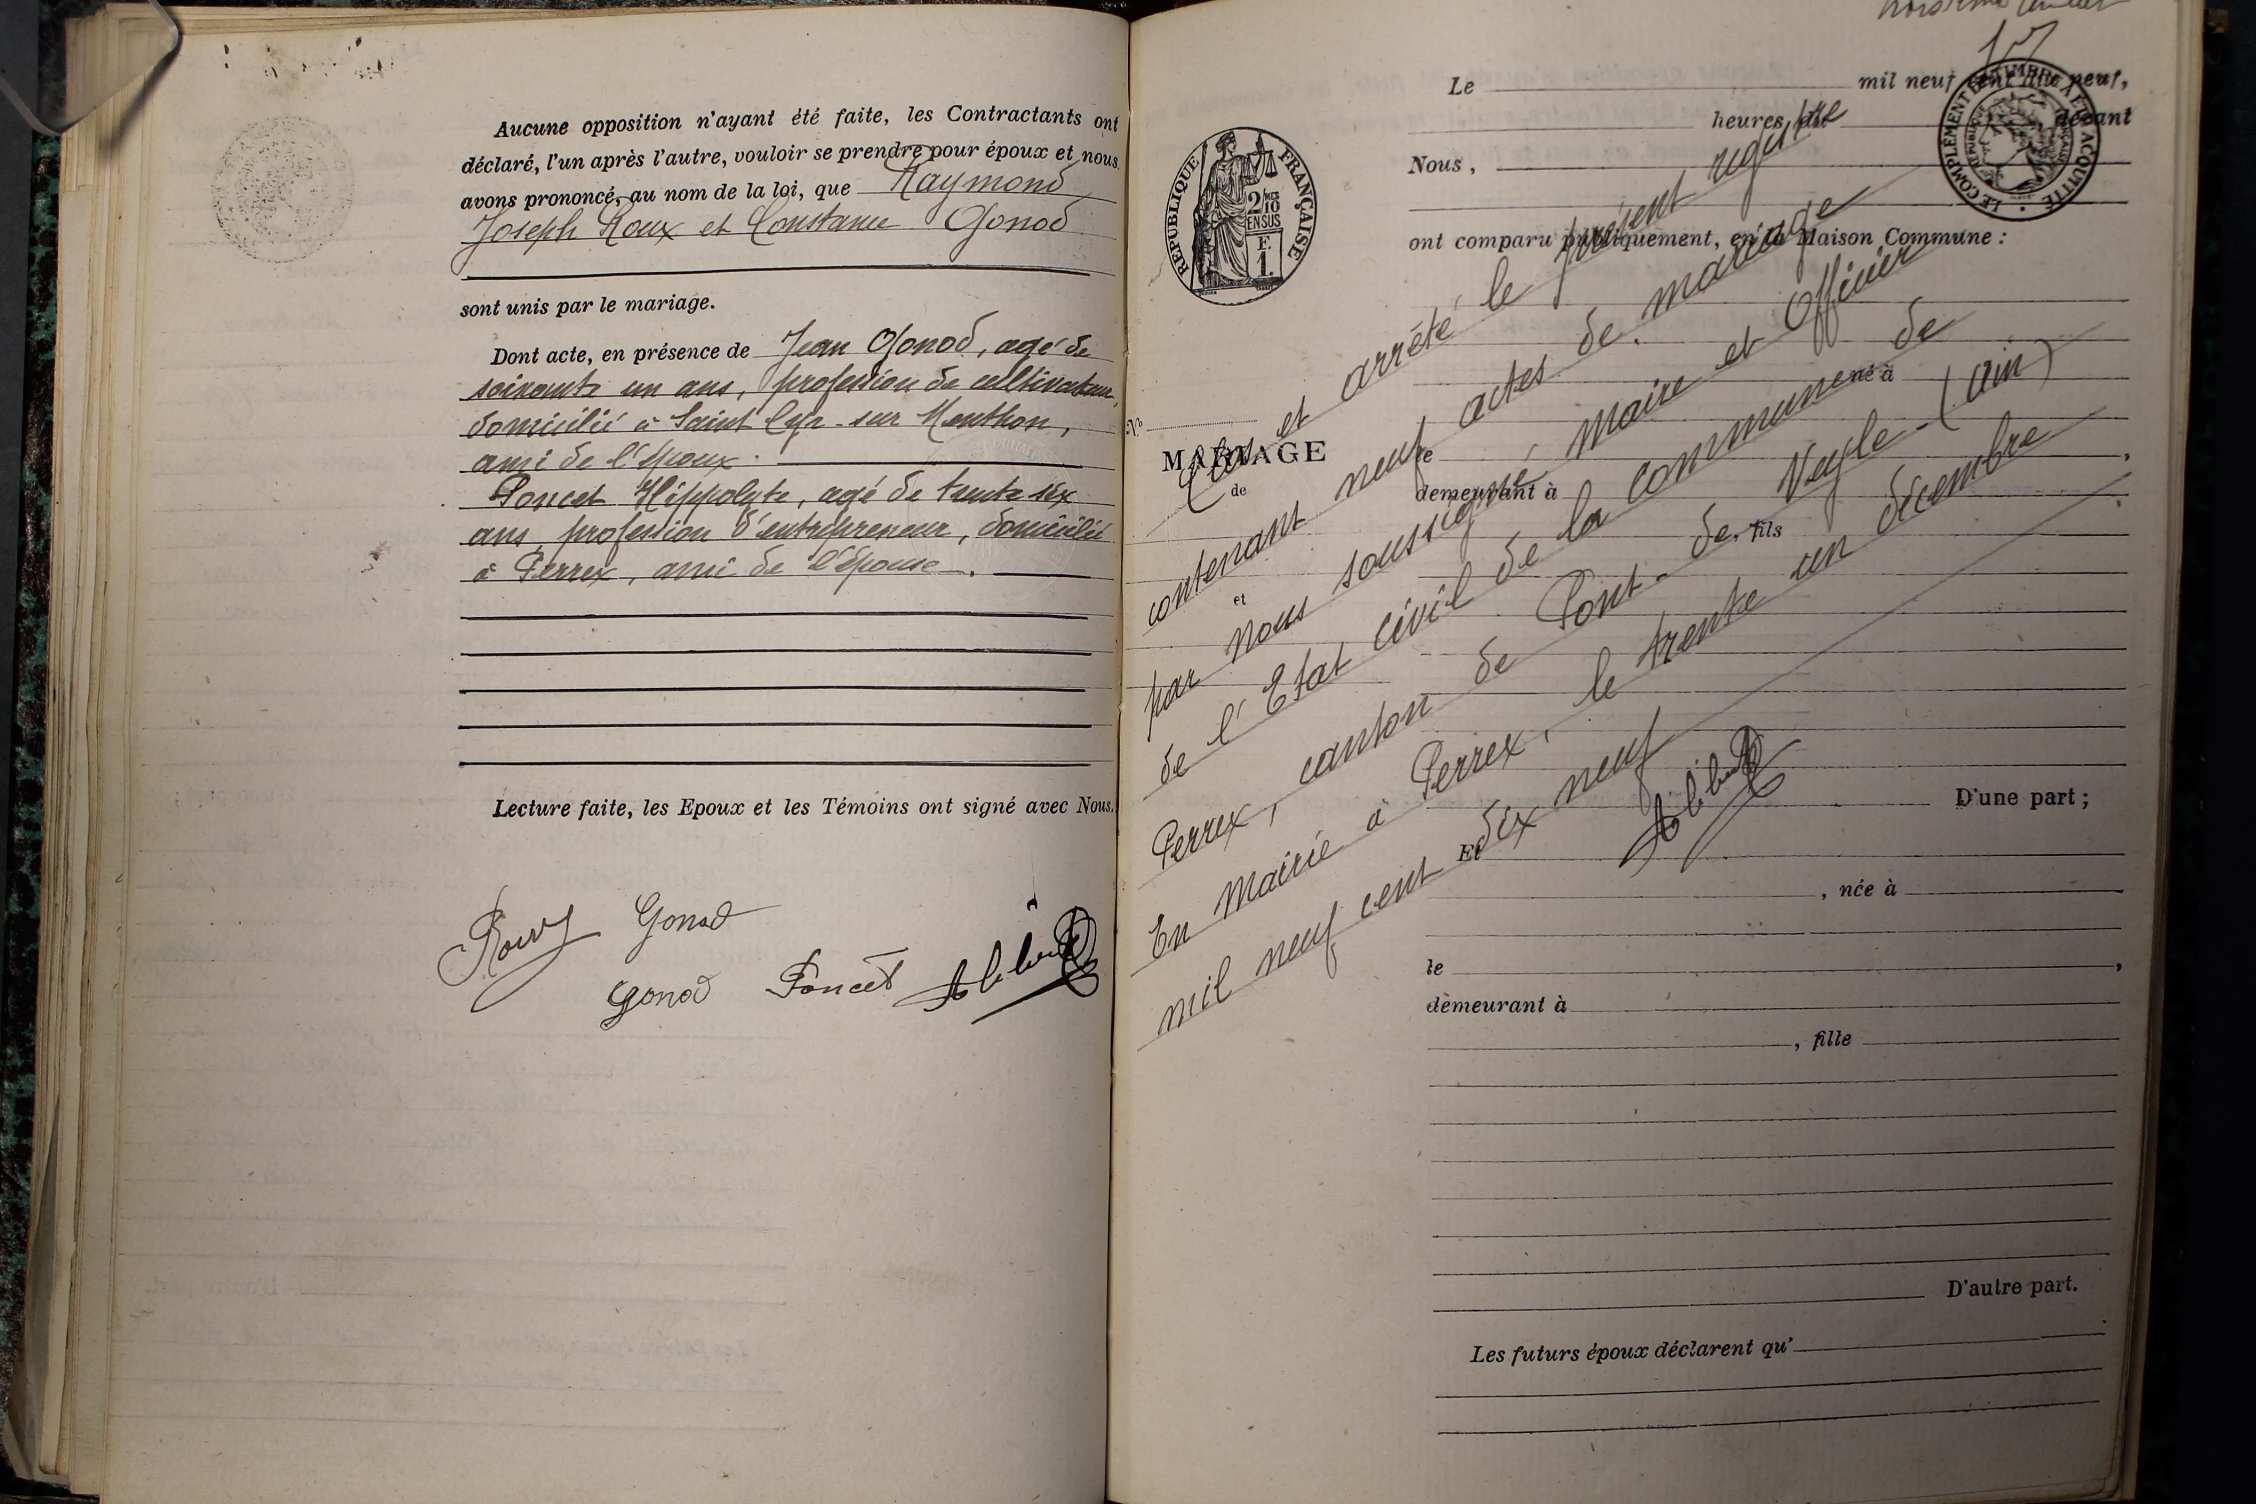 Aucune opposition n'ayant été faite, les Contractants ont
déclaré, l'un après l'autre, vouloir se prendre pour époux et nous
avons prononcé, au nom de la loi, que Raymond
Joseph Roux et Constance Gonod
sont unis par le mariage.
Dont acte, en présence de Jean Gonod, agé de
soixante un ans, profession de cultivateur,
domicilié à Saint Cyr-sur Menthon,
ami de l'époux.
Poncet Hippolyte, agé de trente six
ans, profession d'entrepreneur, domicilié
à Perrex, ami de l'épouse.
Lecture faite, les Epoux et les Témoins ont signé avec Nous.
Roux Gonod
Gonod Poncet
troisième
RÉPUBLIQUE FRANÇAISE
2/10
EN SUS
F.
1.
LE COMPLÉMENT DU TIMBRE A ÉTÉ ACQUITTÉ
Le mil neuf cent dix neuf,
heures du devant
Nous,
ont comparu publiquement, en la Maison Commune :
né à
No
MARIAGE
de
et
le
demeurant à
fils
D'une part ;
Et
, née à
le ,
demeurant à
, fille
D'autre part.
Les futurs époux déclarent qu'
Clos et arrêté le présent registre
contenant neuf actes de mariage
par nous soussigné, Maire et Officier
de l'Etat civil de la commune de
Perrex, canton de Pont-de-Veyle (Ain)
En Mairie à Perrex, le trente un décembre
mil neuf cent dix neuf